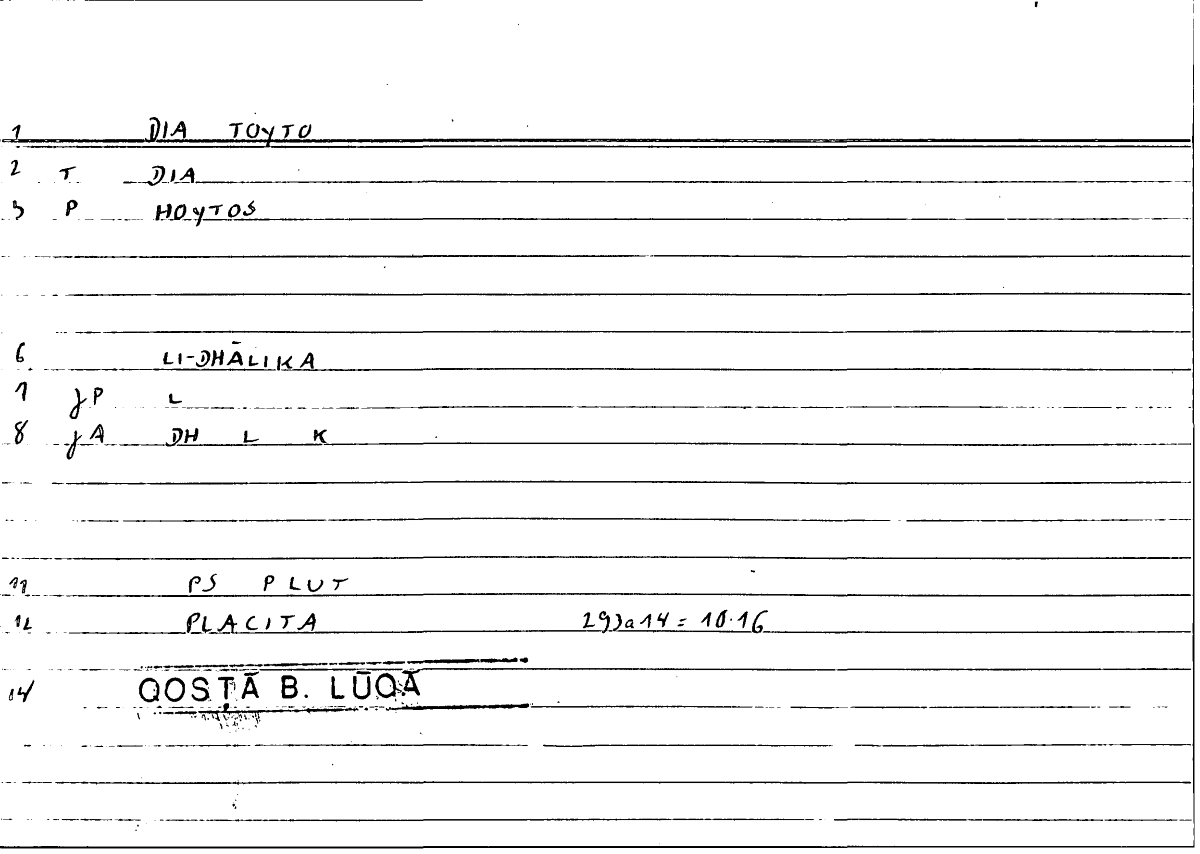 1 DIA TOYTO
2 T DIA
3 P HOYTOS
6 LI-DHĀLIKA
7 P L
8 A DH L K
11 PS PLUT
12 PLACITA 293a14 = 10.16
14 QOSṬĀ B. LŪQĀ